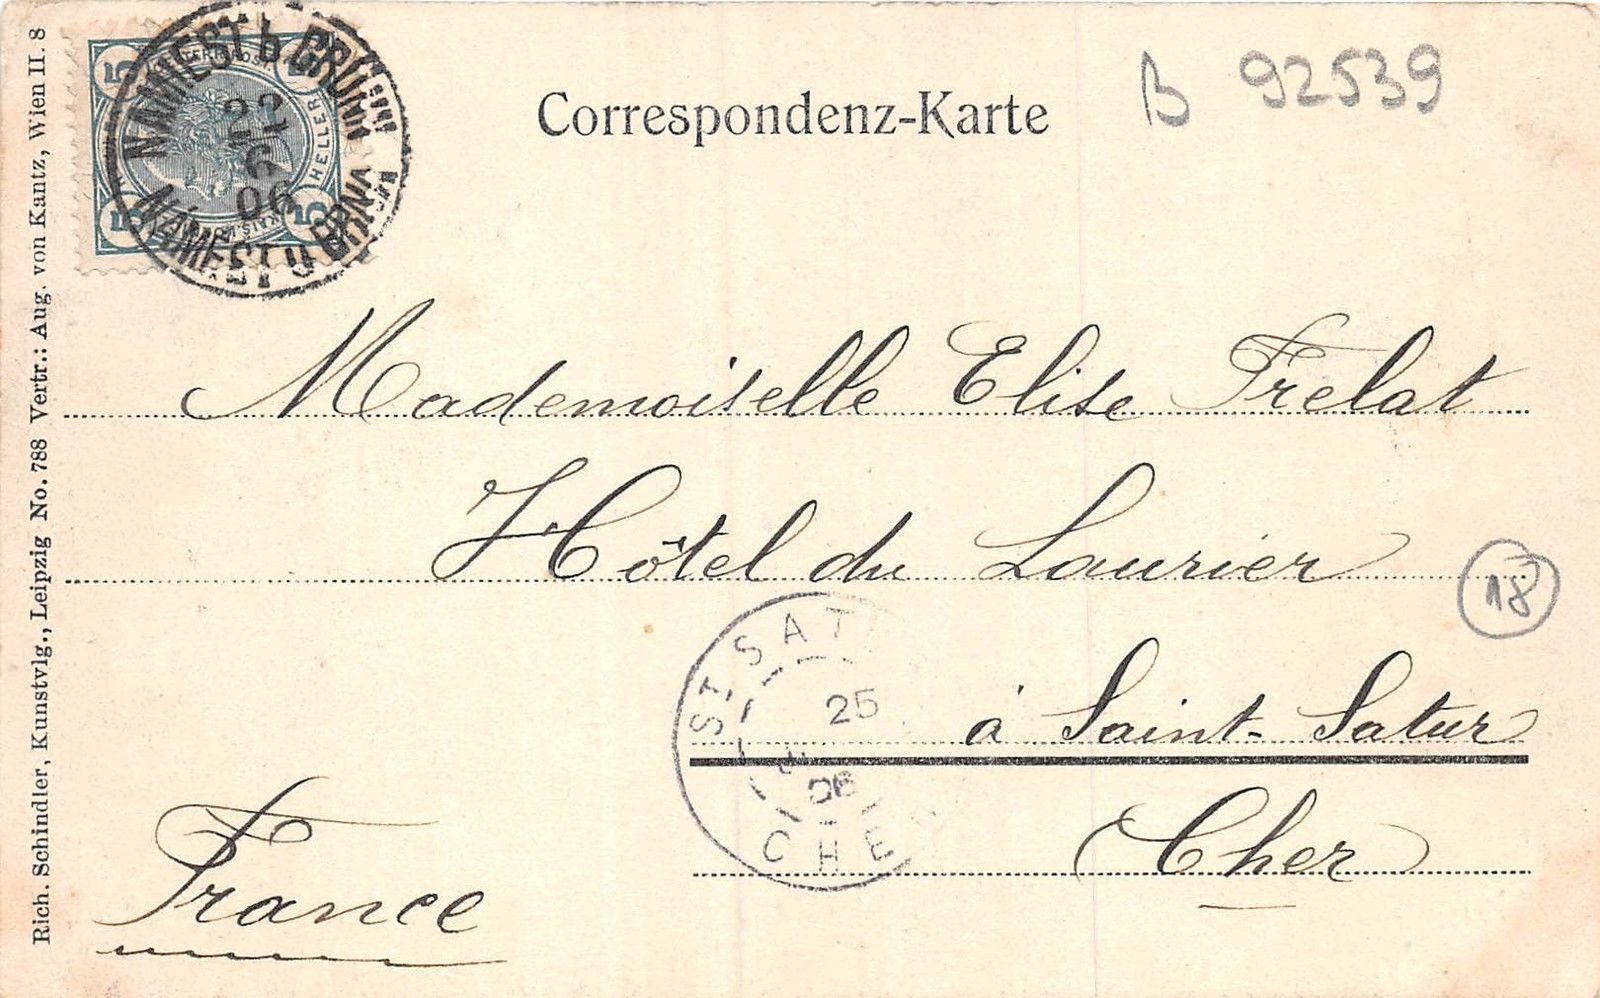 Correspondenz-Karte
B 92539
5 5
HELLER
5 5
NAMIEST b. BRÜNN
22 6
06
NÁMĚŠŤ U BRNA
Mademoiselle Elise Frelat
Hôtel du Laurier
18
à Saint-Satur
Cher
France
ST SAT
25
06
CHE
Rich. Schindler, Kunstvlg., Leipzig No. 788 Vertr.: Aug. von Kantz, Wien II. 8